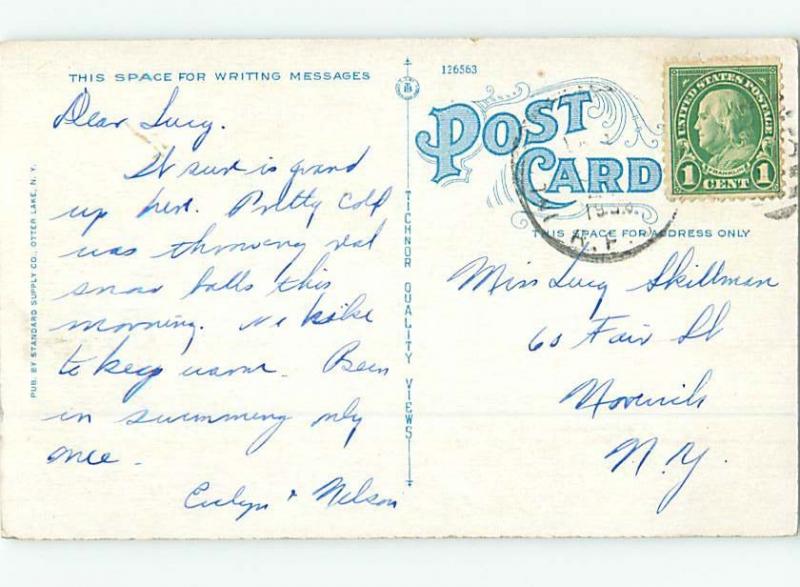 THIS SPACE FOR WRITING MESSAGES
126563
POST
CARD
UNITED STATES POSTAGE
FRANKLIN
1 CENT 1
R.P.
THIS SPACE FOR ADDRESS ONLY
Dear Lucy.
It sure is grand
up here. Pretty cold
was throwing real
snow balls this
morning. We hike
to keep warm. Been
in swimming only
once.
Evelyn & Nelson
PUB. BY STANDARD SUPPLY CO., OTTER LAKE, N. Y.
TICHNOR QUALITY VIEWS
Miss Lucy Skillman
60 Fair St
Norwich
N.Y.